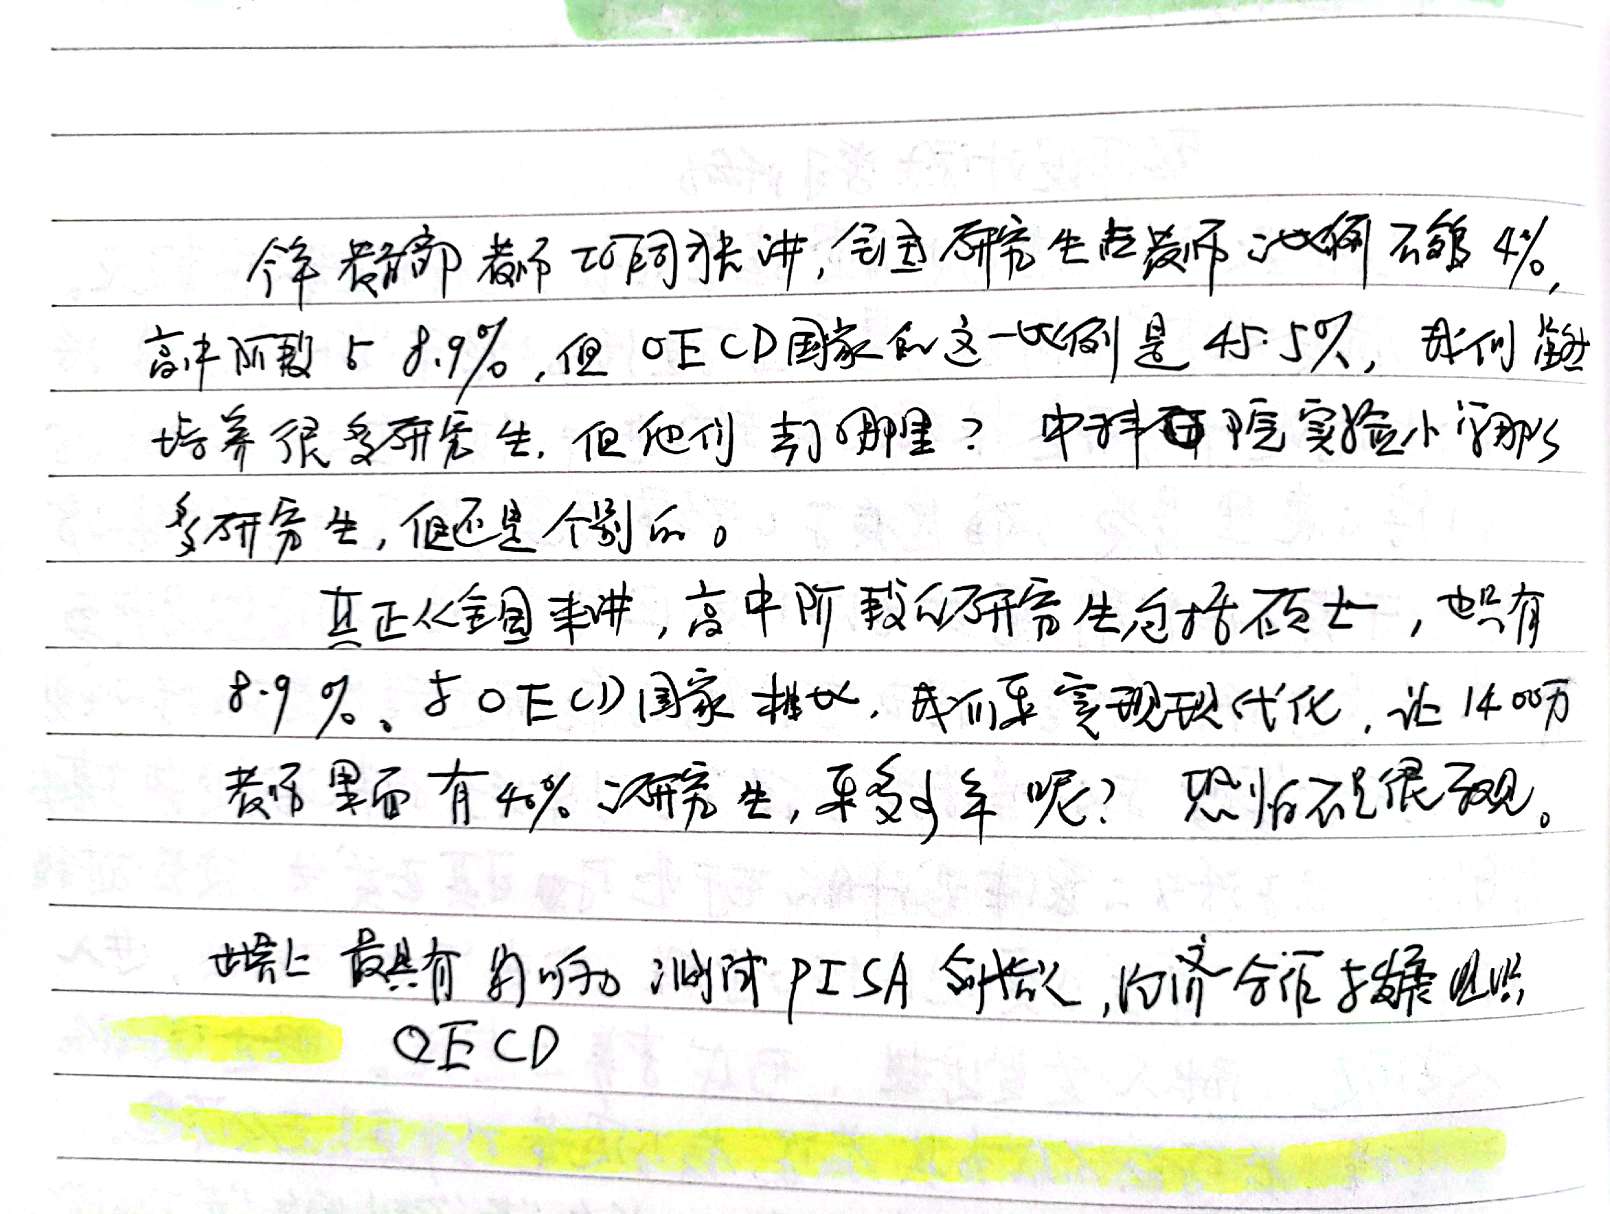 今年教育部教师工作司司长讲,全国研究生占教师比例不够4%,
高中阶段占8.9%,但OECD国家的这一比例是45.5%,我们虽然
培养很多研究生,但他们去了哪里?中科院实验小学那么
多研究生,但还是个别的。
真正从全国来讲,高中阶段的研究生包括硕士,也只有
8.9%、与OECD国家相比,我们要实现现代化,让1400万
教师里面有40%的研究生,要多少年呢?恐怕不是很乐观。
世界上最具有影响力测试PISA 创始人,经济合作与发展组织
OECD